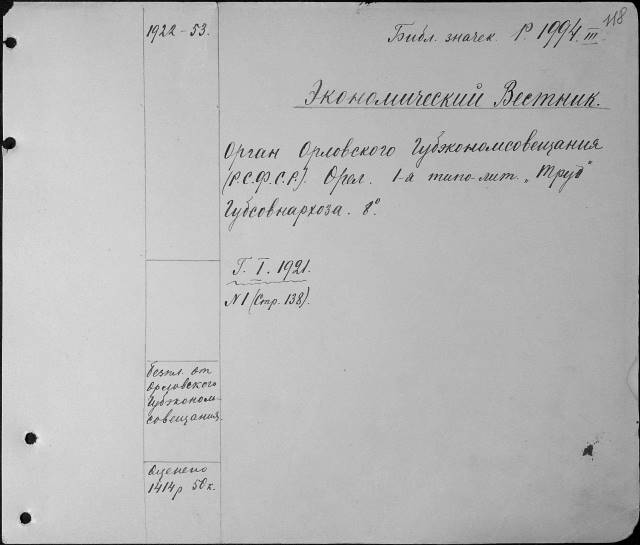 118
1922-53.
Библ. значек. P. 1994 III.
Экономический Вестник.
Орган Орловского Губэкономсовещания
(Р.С.Ф.С.Р.). Орел. 1-я типо-лит. „Труд"
Губсовнархоза. 8°.
Г. I. 1921.
N 1 (Стр. 138).
безпл. от
Орловского
Губэконом-
совещания.
Оценено
1414р 50к.